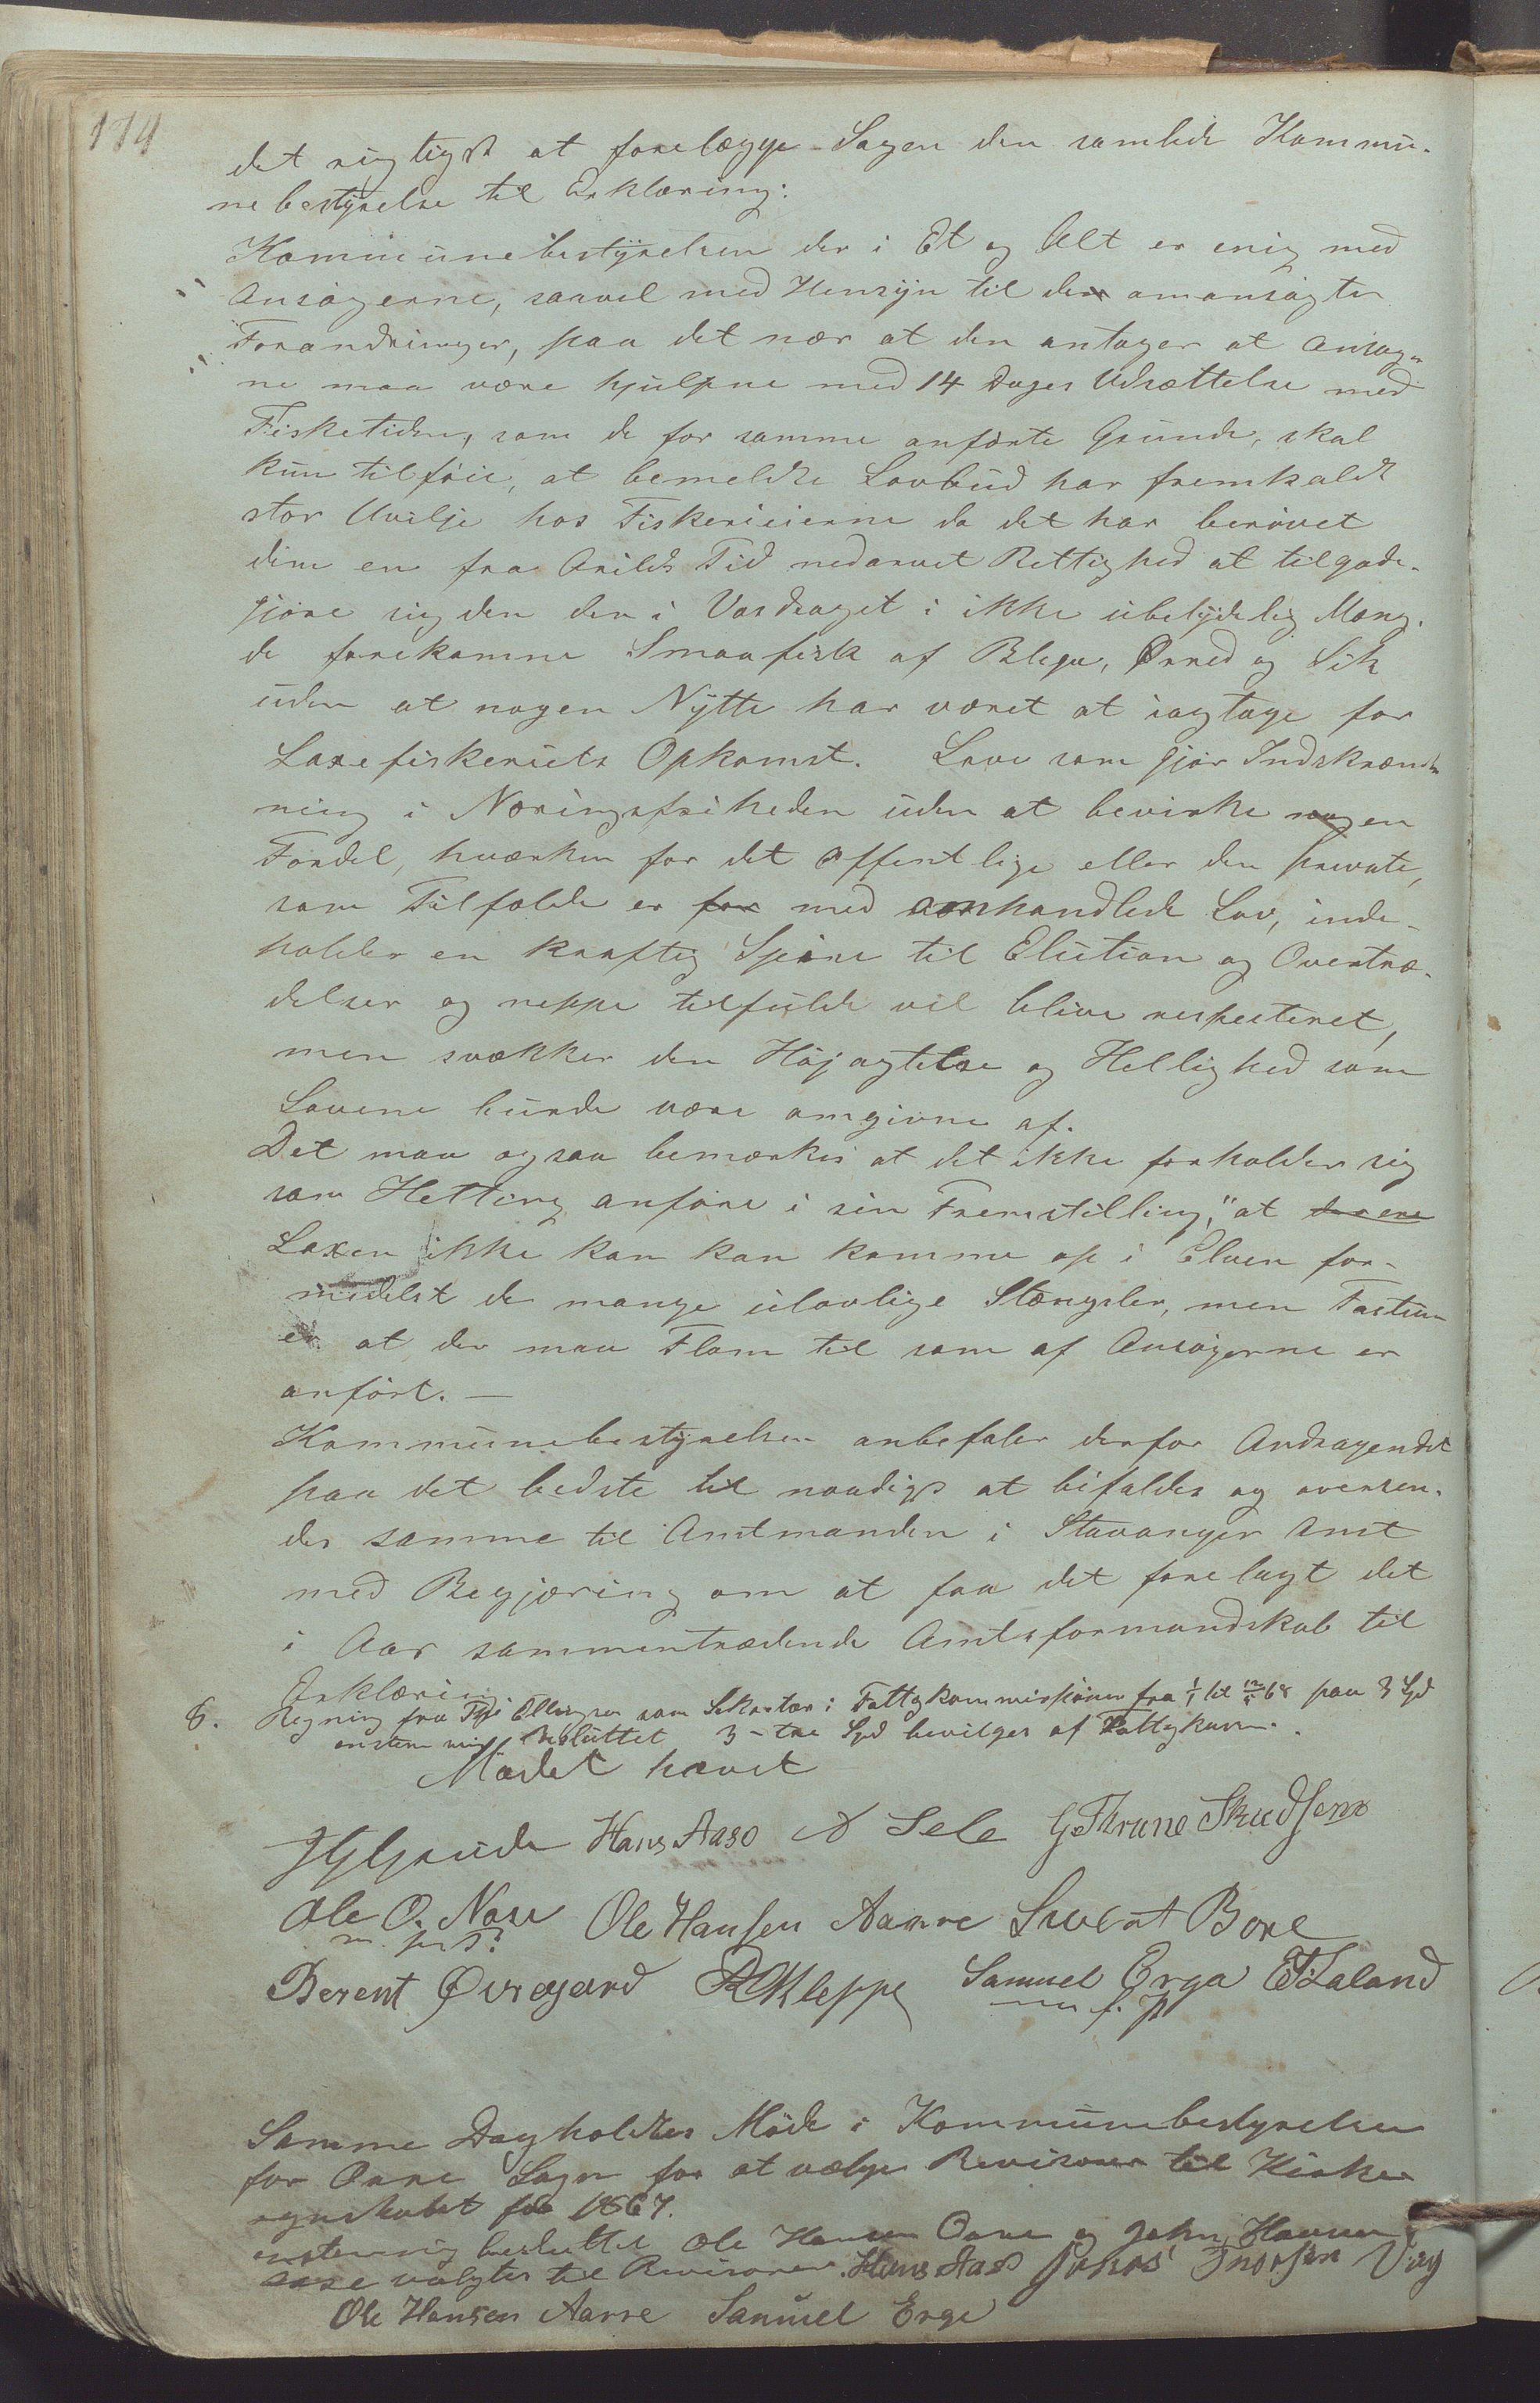 174
det rigtigst at forelægge Sagen den samlede Kommu-
nebestyrelse til Erklæring:
Kommunebestyrelsen der i Et og Alt er enig med
Ansøgerne, saavel med Hensyn til den omansøgte
Forandringer, paa det nær at den antager at Ansøger-
ne maa være hjulpne med 14 Dages Udsættelse med
Fisketiden, som de for samme anførte Grunde, skal
kun tilføie, at bemeldte Lovbud har fremkaldt
stor Uvilje hos Fiskerieierne da det har berøvet
dem en fra Arilds Tid nedarvet Rettighed at tilgode-
gjøre sig den den i Vasdraget i ikke ubetydelig Mæng-
de forekomne Smaafisk af Blege, Ørred og Sik
uden at nogen Nytte har været at iagtage for
Laxefiskeriets Opkomst. Love som gjør Indskrænk-
ning i Næringsfriheden uden at bevirke nogen
Fordel, hværken for det offentlige eller den private,
som Tilfælde er for med omhandlede Lov, inde-
holder en kraftig Spore til Elution og Overtræ-
delser og neppe tilfulde vil blive respecteret,
men svækker den Højagtelse og Hellighed som
Lovene burde være omgivne af.
Det maa ogsaa bemærkes at det ikke forholder sig
som Hetting anføre i sin Fremstilling, "at der ere
Laxen ikke kan kan komme op i Elven for-
midelst de mange ulovlige Stængsler, men Factum
er at der maa Flom til som af Ansøgerne er
anført. —
Kommunebestyrelsen anbefaler derfor Andragendet
paa det bedste til naadigst at bifaldes og oversen-
des samme til Amtmanden i Stavanger Amt
med Begjæring om at faa det forelagt det
i Aar sammentrædende Amtsformandskab til
Erklæring
8. Regning fra Ellingsen som Sekretær i Fattigkommissionen fra 1/1 til 68 paa 3 Spd
enstemmig besluttet 3 - tre Spd bevilges af Fattigkassen.
Mødet hævet
Hans Aase Sele G Thrane Skudsen
Ole O. Nase Ole Hansen Aanre Sivert Bore
m. f. P.
Berent Øvregaard Kleppe Samuel Erga E Laland
m f. P
Samme Dag holdtes Møde i Kommunebestyrelsen
for Orre Sogn for at vælge Revisorer til Kirke
regnskabet for 1867.
enstemmig besluttet Ole Hansen Orre og John Hansen
valgtes til Revisorer. Hans Aase Jonas Vig
Ole Hansen Aarre Samuel Erge